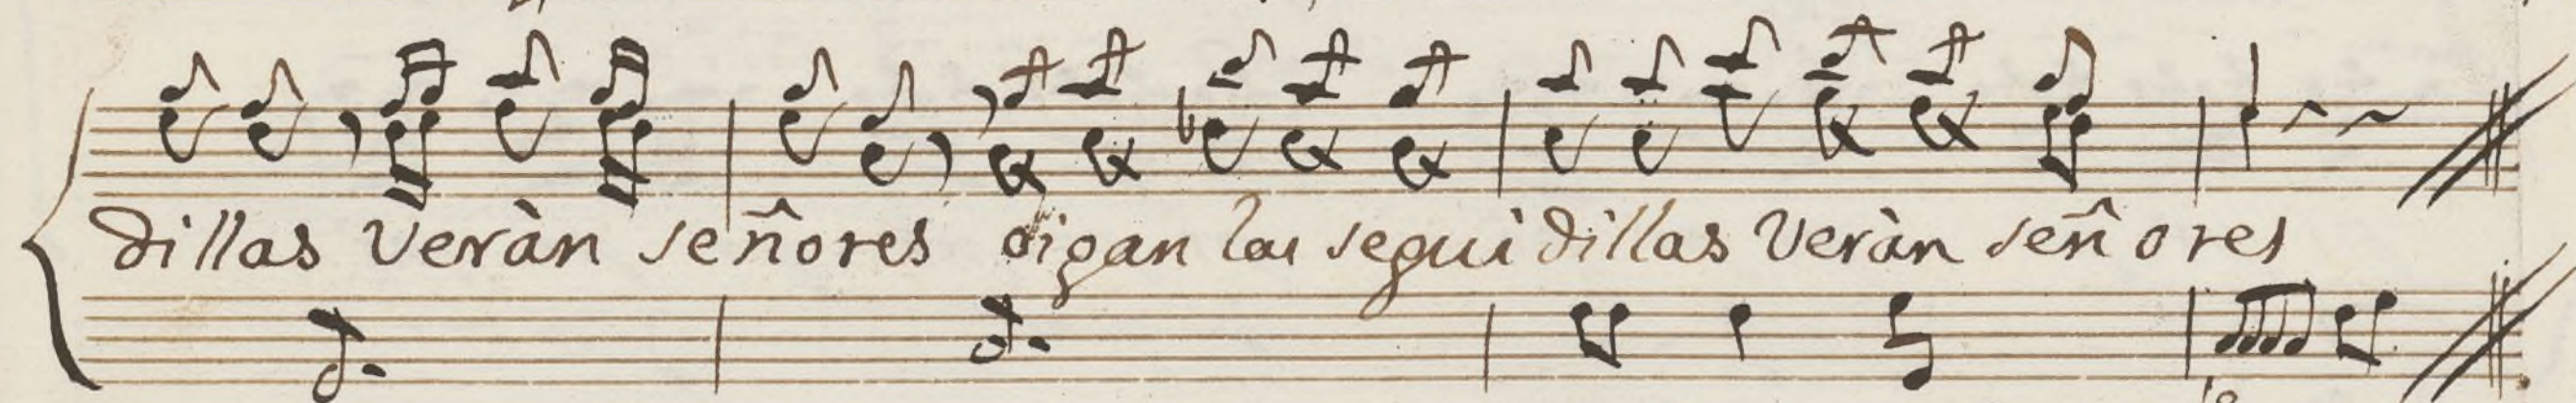 dillas veràn señores oigan las segui dillas Veràn señores